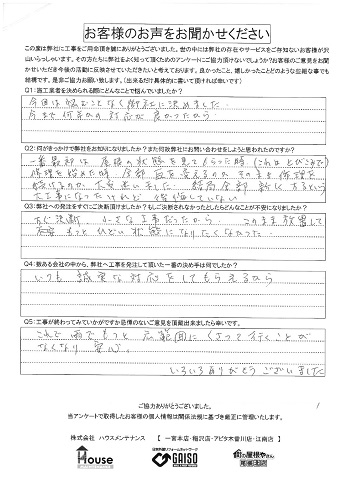 お客様のお声をお聞かせください
この度は弊社に工事をご用命頂き誠にありがとうございました。世の中には弊社の存在やサービスをご存知ないお客様が沢
山いらっしゃいます。その方たちに弊社をよく知って頂くためのアンケートにご協力頂けないでしょうか?お客様のご意見をお聞
かせいただき今後の活動に反映させていただきたいと考えております。良かったこと、嬉しかったことどのような些細な事でも
結構です。是非ご協力お願い致します。(出来るだけ具体的に書いて頂ければ幸いです)
Q1:施工業者を決められる際にどんなことで悩んでいましたか?
今回は悩むことなく御社に決めました
今まで何年かの対応が良かったから
Q2:何がきっかけで弊社をお知りになりましたか?また何故弊社にお問い合わせをしようと思われたのですか?
一番最初は 屋根の状態を見てもらった時
修理を始めた時 全部 瓦を変えるのか そのまま修理を
続けるのか 大変迷いました 結局全部 新しくするという
大工事になったけれど 後悔していない
Q3:弊社への発注をすぐにご決断頂けましたか?もしご決断されなかったとしたらどんなことが不安になりましたか?
すぐ決断 小さな工事だったから このまま放置して
もっとひどい状態になりたくなかった
Q4:数ある会社の中から、弊社へ工事を発注して頂いた一番の決め手は何でしたか?
いつも 誠実な対応をしてもらえるから
Q5:工事が終わってみていかがですか忌憚のないご意見を頂戴出来ましたら幸いです。
これで雨でもっと広範囲にくさって行くことが
なくなり 安心
いろいろありがとうございました
ご協力ありがとうございました。
当アンケートで取得したお客様の個人情報は関係法規に基づき厳正に管理いたします。
株式会社 ハウスメンテナンス 【 一宮本店・稲沢店・アピタ木曽川店・江南店 】
House
日本外装リフォームネットワーク
GAISO
街の屋根やさん